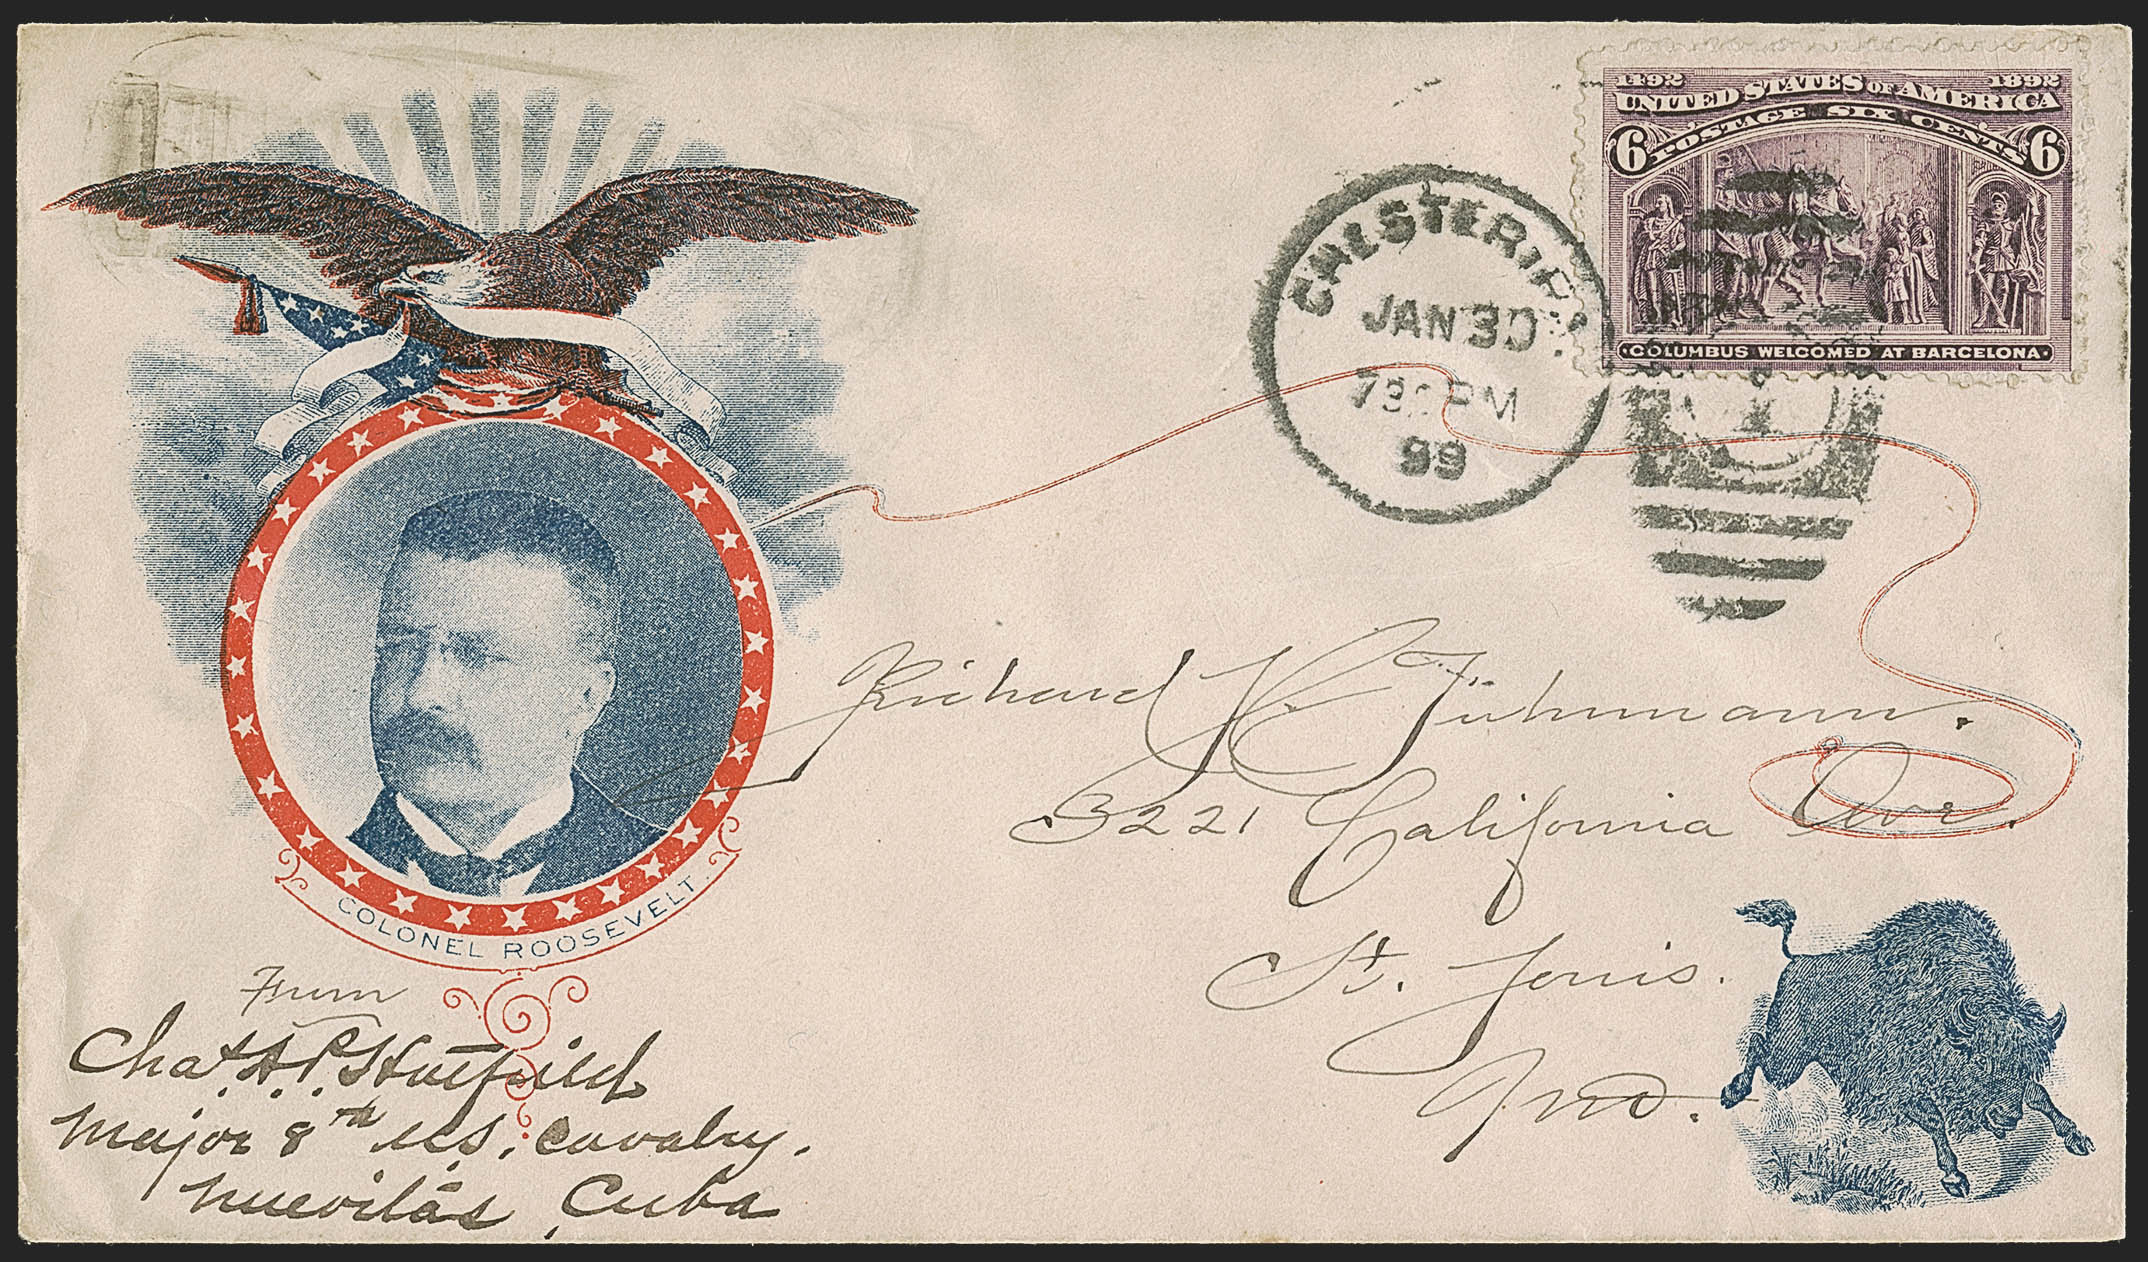 1492 1892
UNITED STATES OF AMERICA
POSTAGE SIX CENTS
6 6
COLUMBUS WELCOMED AT BARCELONA
JAN 30
PM
99
COLONEL ROOSEVELT.
Richard Fuhrmann.
3221 California Ave.
St. Louis.
Mo.
From
Chas. A. P. Hatfield
Major 8th U.S. Cavalry.
Nuevitas, Cuba